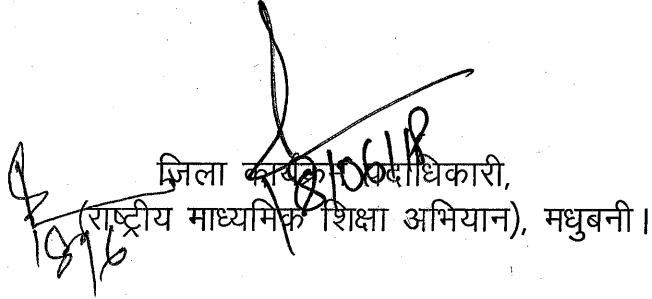 18/06/18
जिला कार्यक्रम पदाधिकारी,
(राष्ट्रीय माध्यमिक शिक्षा अभियान), मधुबनी।
18/6